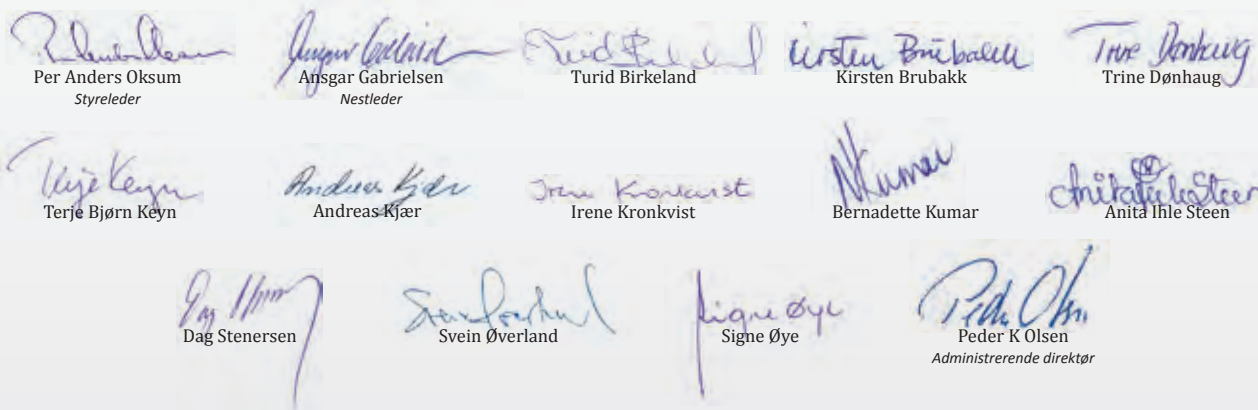 Per Anders Oksum Ansgar Gabrielsen Turid Birkeland Kirsten Brubakk Trine Dønhaug
Styreleder Nestleder
Terje Bjørn Keyn Andreas Kjær Irene Kronkvist Bernadette Kumar Anita Ihle Steen
Dag Stenersen Svein Øverland Signe Øye Peder K Olsen
Administrerende direktør